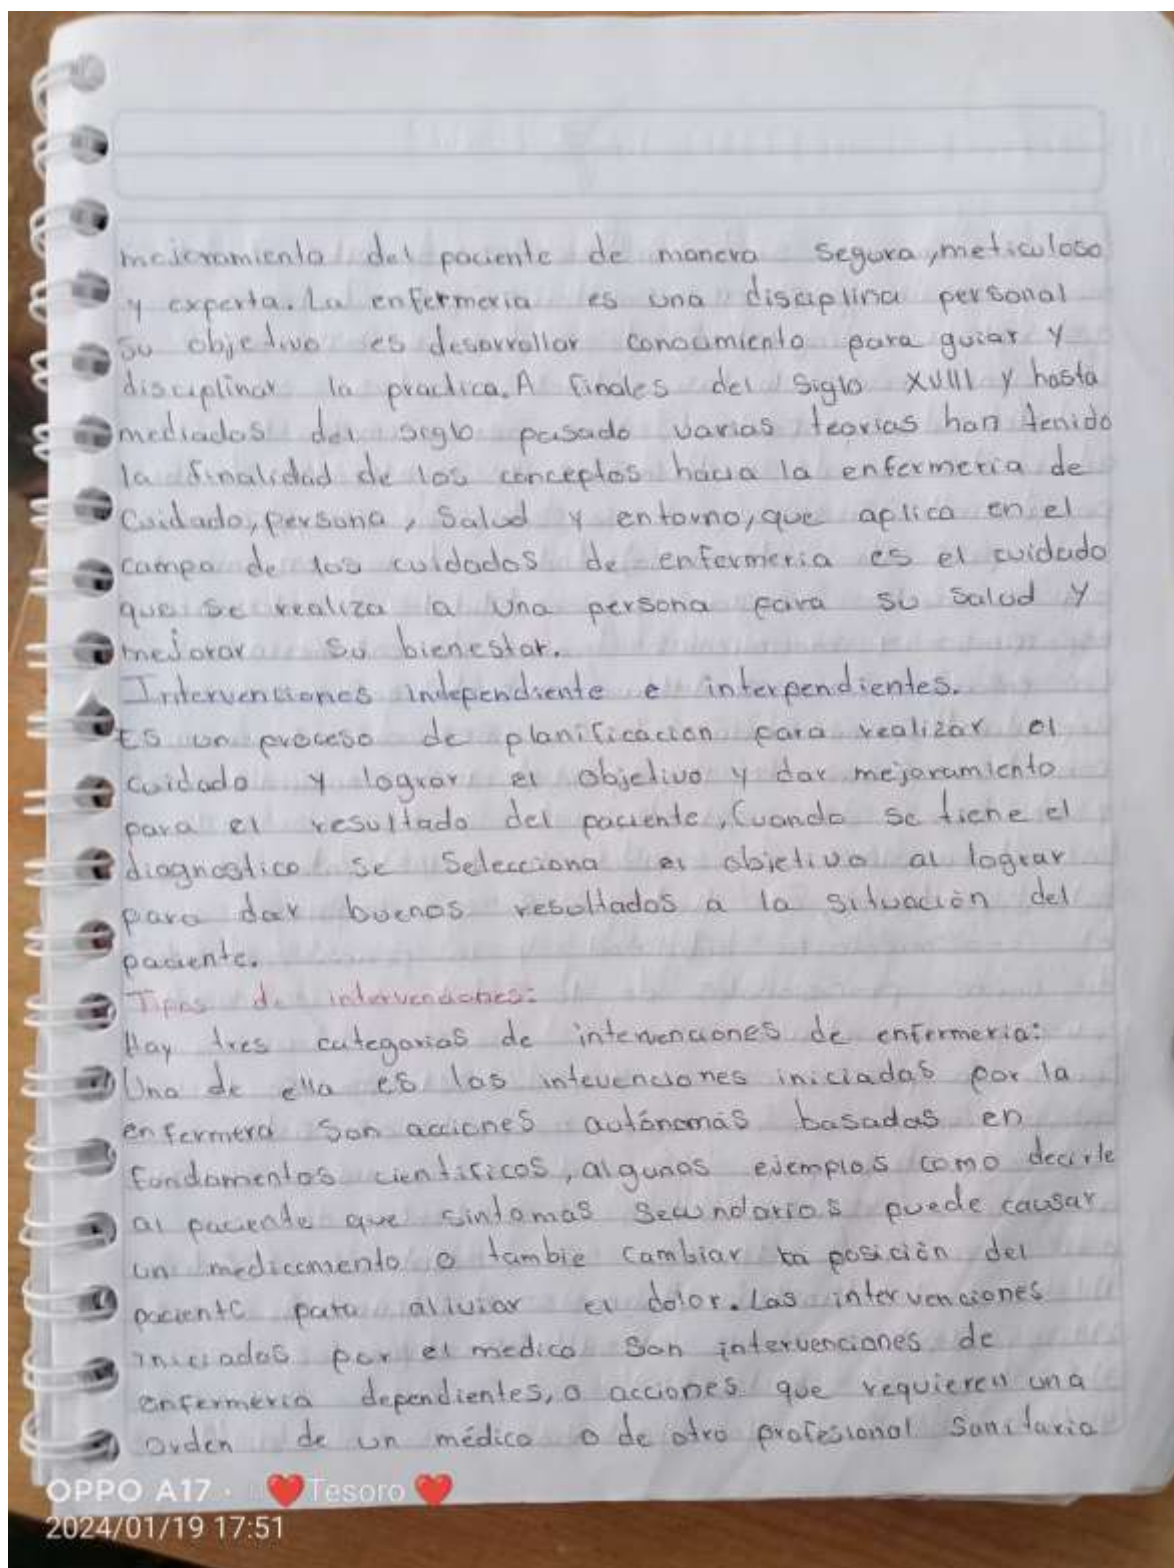 mejoramiento del paciente de manera segura, meticuloso
y experta. La enfermeria es una disciplina personal
su objetivo es desarrollar conocimiento para guiar y
disciplinar la practica. A finales del siglo XVIII y hasta
mediados del siglo pasado varias teorias han tenido
la finalidad de los conceptos hacia la enfermeria de
Cuidado, persona, Salud y entorno, que aplica en el
campo de los cuidados de enfermeria es el cuidado
que se realiza a una persona para su salud y
mejorar su bienestar.
Intervenciones independiente e interpendientes.
Es un proceso de planificacion para realizar el
cuidado y lograr el objetivo y dar mejoramiento
para el resultado del paciente, Cuando se tiene el
diagnostico se Selecciona el objetivo al lograr
para dar buenos resultados a la situación del
paciente.
Tipos de intervenciones:
Hay tres categorias de intervenciones de enfermeria:
Una de ella es las intevenciones iniciadas por la
enfermera son acciones autónomas basadas en
fundamentos cientificos, algunos ejemplos como decirle
al paciente que sintomas Secundarios puede causar
un medicamento o tambie cambiar la posición del
paciente para aliviar el dolor. Las intervenciones
iniciadas por el medico Son intervenciones de
enfermeria dependientes, o acciones que requieren una
orden de un médico o de otro profesional Sanitaria
OPPO A17 · ❤️Tesoro❤️
2024/01/19 17:51